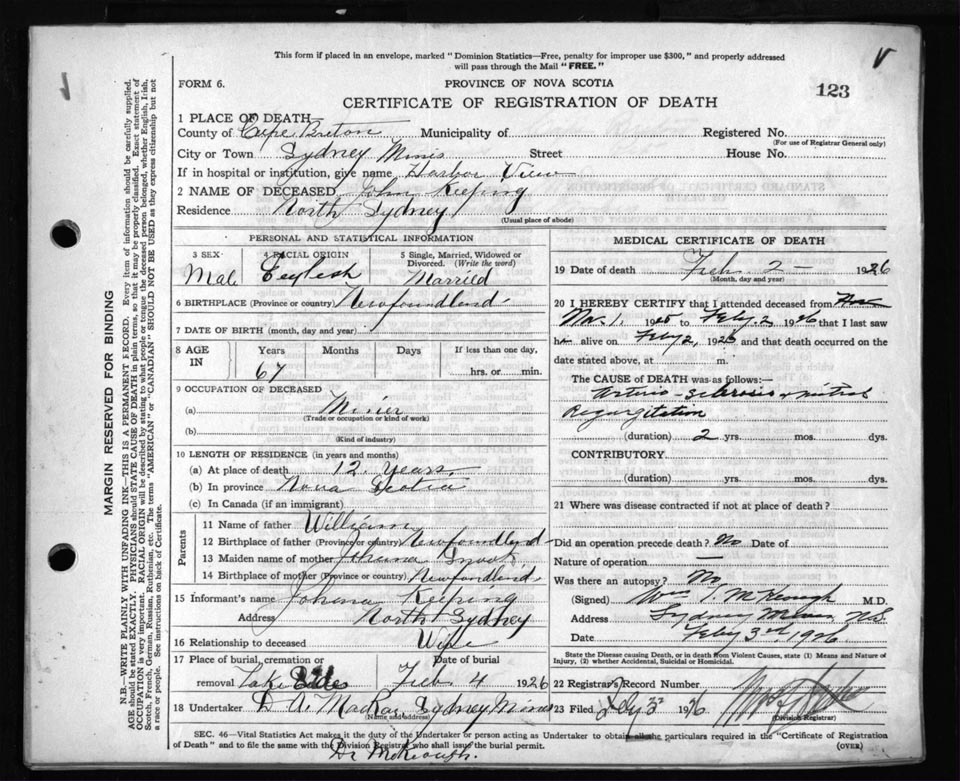 This form if placed in an envelope, marked "Dominion Statistics—Free, penalty for improper use $300," and properly addressed
will pass through the Mail "FREE."
FORM 6.
PROVINCE OF NOVA SCOTIA
123
CERTIFICATE OF REGISTRATION OF DEATH
1 PLACE OF DEATH
County of Cape Breton Municipality of Registered No.
(For use of Registrar General only)
City or Town Sydney Mines Street House No.
If in hospital or institution, give name Harbor View
2 NAME OF DECEASED John Keeping
Residence North Sydney
(Usual place of abode)
PERSONAL AND STATISTICAL INFORMATION
3 SEX 4 RACIAL ORIGIN 5 Single, Married, Widowed or
Divorced. (Write the word)
Male English Married
6 BIRTHPLACE (Province or country) Newfoundland
7 DATE OF BIRTH (month, day and year)
8 AGE IN Years Months Days If less than one day,
67 hrs. or min.
9 OCCUPATION OF DECEASED
(a) Miner
(Trade or occupation or kind of work)
(b)
(Kind of industry)
10 LENGTH OF RESIDENCE (in years and months)
(a) At place of death 12 Years
(b) In province Nova Scotia
(c) In Canada (if an immigrant)
Parents
11 Name of father William
12 Birthplace of father (Province or country) Newfoundland
13 Maiden name of mother Johanna Snook
14 Birthplace of mother (Province or country) Newfoundland
15 Informant's name Johena Keeping
Address North Sydney
16 Relationship to deceased Wife
17 Place of burial, cremation or Date of burial
removal Lake Feb 4 1926
18 Undertaker D A. MacRae Sydney Mines
(Name and address)
MEDICAL CERTIFICATE OF DEATH
19 Date of death Feb 2— 1926
(Month, day and year)
20 I HEREBY CERTIFY that I attended deceased from
1, 1925 to Feby 2, 1926 that I last saw
h alive on Feby 2, 1926 and that death occurred on the
date stated above, at m.
The CAUSE of DEATH was as follows:—
Arterio-Sclerosis + mitral
Regurgitation
(duration) 2 yrs. mos. dys.
CONTRIBUTORY.
(duration) yrs. mos. dys.
21 Where was disease contracted if not at place of death?
Did an operation precede death? No Date of
Nature of operation —
Was there an autopsy? No
(Signed) Wm T. McKeough M.D.
Address Sydney Mines N.S
Date Feby 3rd 1926
State the Disease causing Death, or in Death from Violent Causes, state (1) Means and Nature of
Injury, (2) whether Accidental, Suicidal or Homicidal.
22 Registrar's Record Number
23 Filed Feby 3 1926
(Division Registrar)
SEC. 46—Vital Statistics Act makes it the duty of the Undertaker or person acting as Undertaker to obtain all the particulars required in the "Certificate of Registration
of Death" and to file the same with the Division Registrar who shall issue the burial permit.
(OVER)
Dr McKeough.
MARGIN RESERVED FOR BINDING
N.B.—WRITE PLAINLY WITH UNFADING INK—THIS IS A PERMANENT RECORD. Every item of information should be carefully supplied.
AGE should be stated EXACTLY. PHYSICIANS should STATE CAUSE OF DEATH in plain terms, so that it may be properly classified. Exact statement of
OCCUPATION is very important. RACIAL ORIGIN will be described by stating to what people or tongue the deceased person belonged, whether English, Irish,
Scotch, French, German, Russian, Ruthenian, etc. The terms "AMERICAN" or "CANADIAN" SHOULD NOT BE USED as they express citizenship but not
a race or people. See instructions on back of Certificate.